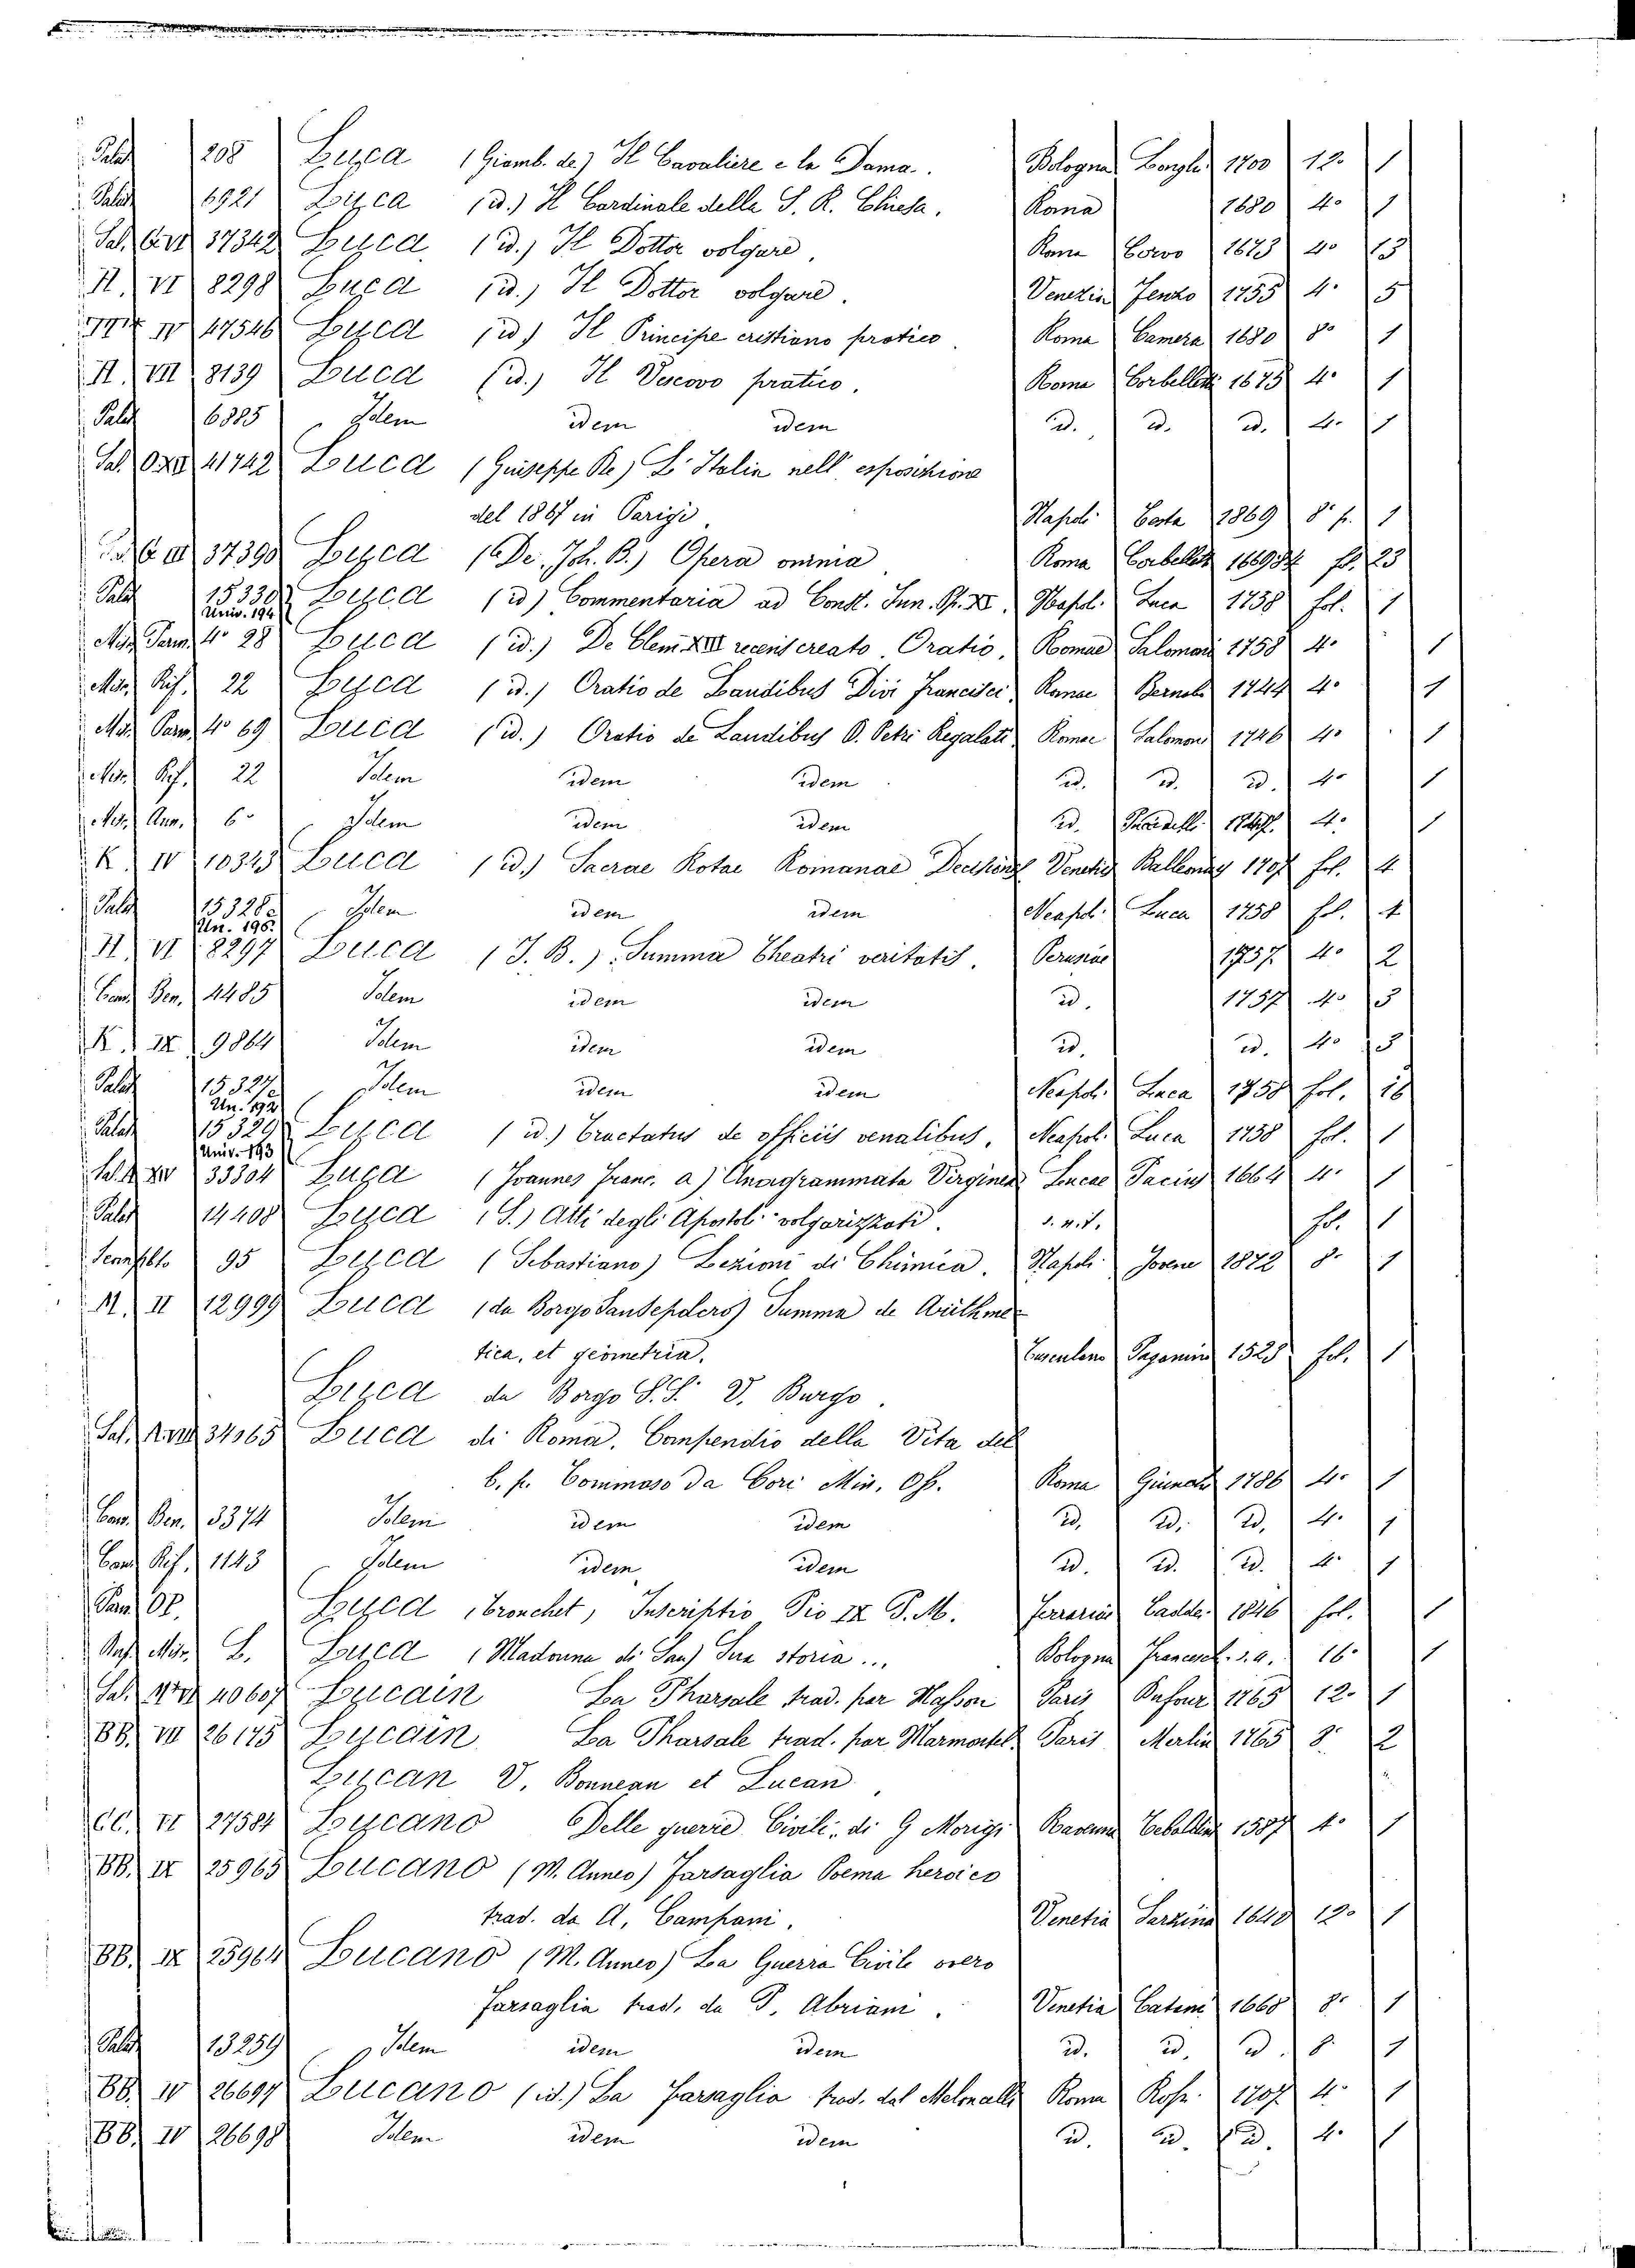 Palat 208 Luca (Giamb. de) Il Cavaliere e la Dama. Bologna Longhi 1700 12° 1
Palat 6921 Luca (id.) Il Cardinale della S. R. Chiesa. Roma 1680 4° 1
Sal. 37342 Luca (id.) Il Dottor volgare, Roma Corvo 1673 4° 13
H. VI 8298 Luca (id.) Il Dottor volgare. Venezia 1755 4° 5
IV 47546 Luca (id.) Il Principe cristiano pratico. Roma Camera 1680 8° 1
H. VII 8139 Luca (id.) Il Vescovo pratico. Roma Corbelletti 1675 4° 1
Palat 6885 Idem idem idem id. id. id. 4° 1
Sal. 41742 Luca (Giuseppe De) L'Italia nell'esposizione
del 1867 in Parigi. Napoli Costa 1869 8° p. 1
37390 Luca (De, Joh. B.) Opera omnia Roma Corbelletti fol. 23
Palat 15330 Univ. 194 Luca (id) Commentaria ad Const. Inn. P. XI. Napol. Luca 1758 fol. 1
Min. Parm. 4° 28 Luca (id.) De Clem XIII recens creato Oratio. Romae Salomoni 1758 4° 1
Min. Rif. 22 Luca (id.) Oratio de Laudibus Divi Francisci, Romae Bernabò 1744 4° 1
Min. Parm. 4° 69 Luca (id.) Oratio de Laudibus D. Petri Regalati, Romae Salomoni 1746 4° 1
Min. Rif. 22 Idem idem idem id. id. id. 4° 1
Min. Ann. 6 Idem idem idem id. 4° 1
K. IV 10343 Luca (id.) Sacrae Rotae Romanae Decisiones Venetiis 1707 fol. 4
Palat 15328 Un. 195. Idem idem idem Neapol. Luca 1758 fol. 4
H. VI 8297 Luca (J. B.) Summa Theatri veritatis. Perusiae 1757. 4° 2
Conv. Ben. 4485 Idem idem idem id. 1757 4° 3
K. IX 9864 Idem idem idem id. id. 4° 3
Palat 15327 Un. 192 Idem idem idem Neapol. Luca 1758 fol. 16
Palat 15329 Univ. 193 Luca (id.) Tractatus de officiis venalibus. Neapol. Luca 1758 fol. 1
Sal. XIV 33304 Luca (Joannes Franc. a) Anagrammata Virginea Lucae Pacius 1664 4° 1
Palat 14408 Luca (S.) Atti degli Apostoli volgarizzati. s. n. t. fol. 1
95 Luca (Sebastiano) Lezioni di Chimica. Napoli Jovene 1872 8° 1
M. II 12999 Luca (da Borgo Sansepolcro) Summa de Arithme-
tica, et geometria. Tusculano Paganini 1523 fol. 1
Luca da Borgo S. S. V. Burgo.
Sal. 34065 Luca di Roma. Compendio della Vita del
b. p. Tommaso da Cori Min. Oss. Roma 1786 4° 1
Conv. Ben. 3374 Idem idem idem id. id. id. 4° 1
Conv. Rif. 1143 Idem idem idem id. id. id. 4° 1
Luca (Tronchet) Inscriptio Pio IX P. M. Ferrariae Taddei 1846 fol. 1
L. Luca (Madonna di San) Sua storia... Bologna s. a. 16° 1
Sal. 40607 Lucain La Pharsale trad. par Masson Paris Dufour 1765 12° 1
BB. VII 26175 Lucain La Pharsale trad. par Marmontel Paris Merlin 1765 8° 2
Lucan V. Bonneau et Lucan
CC. VI 27584 Lucano Delle guerre Civili, di G Morigi Ravenna Tebaldini 1587 4° 1
BB. IX 25965 Lucano (M. Anneo) Farsaglia Poema heroico
trad. da A. Campani. Venetia Sarzina 1640 12° 1
BB. IX 25964 Lucano (M. Anneo) La Guerra Civile overo
Farsaglia trad. da P. Abriani. Venetia Catani 1668 8° 1
Palat 13259 Idem idem idem id. id. id. 8° 1
BB. IV 26697 Lucano (id.) La Farsaglia trad. dal Meloncelli Roma Ross. 1707 4° 1
BB. IV 26698 Idem idem idem id. id. id. 4° 1